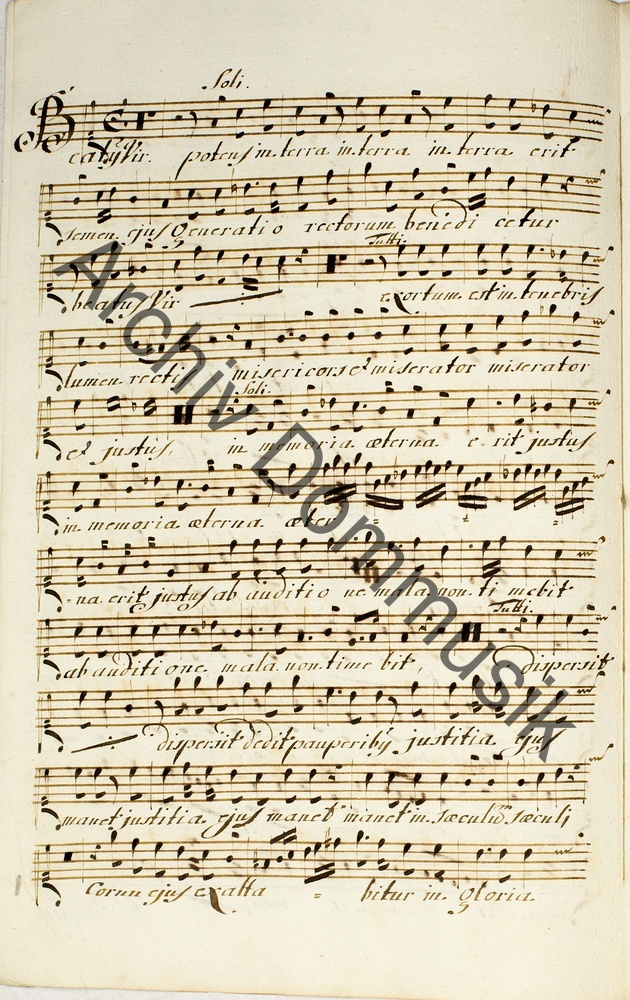 Soli.
Beatus Vir. potens in terra in terra in terra erit
semen ejus Generatio rectorum benedicetur
Tutti.
beatus Vir exortum est in tenebris
lumen recti misericors et miserator miserator
Soli.
et justus, in memoria æterna erit justus
in memoria æterna æter
na erit justus ab auditione mala non timebit
Tutti.
ab auditione mala non timebit, dispersit
dispersit dedit pauperiby justitia ejus
manet justitia ejus manet manet in sæculum sæculi
Cornu ejus exalta = bitur in Gloria
Archiv Dommusik